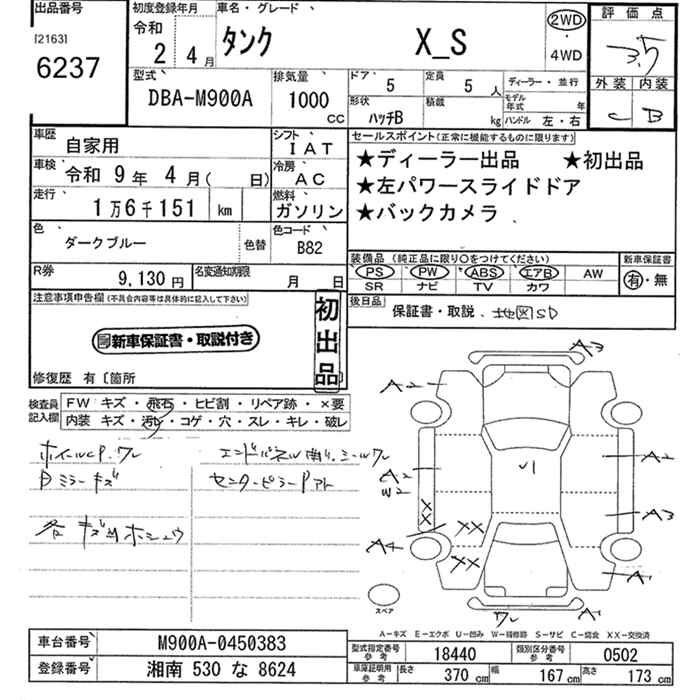 出品番号 初度登録年月 車名・グレード 評価点
[2163] 令和 2WD
6237 2 4月 タンク X_S 4WD 3.5
型式 排気量 ドア 5 定員 5人 ディーラー・並行 外装 内装
DBA-M900A 1000cc 形状 ハッチB 積載 kg モデル年式 年 ハンドル 左・右 C B
車歴 自家用 シフト IAT セールスポイント(正常に機能するものに限ります)
車検 令和 9年 4月( 日) 冷房 AC ★ディーラー出品 ★初出品
走行 1万6千151 km 燃料 ガソリン ★左パワースライドドア
★バックカメラ
色 ダークブルー 色替 色コード B82
装備品(純正品に限り○をつけてください) 新車保証書
R券 9,130円 名変通知期限 月 日 PS PW ABS エアB AW 有・無
SR ナビ TV カワ
注意事項申告欄(不具合内容等は具体的に記入して下さい) 初出品 後日品 保証書・取説、地図SD
新車保証書・取説付き
修復歴 有〔箇所
検査員記入欄 FW キズ・飛石・ヒビ割・リペア跡・×要
内装 キズ・汚レ・コゲ・穴・スレ・キレ・破レ
ホイールCP、ワレ
ミラーキズ センターピラーPアト
各キズ凹ホシュウ
A3
A2
U1
A2 A2
W2
X
X XX A3
A4
XX A1
スペア ワレ A1
A-キズ E-エクボ U-凹み W-補修跡 S-サビ C-腐食 XX-交換済
車台番号 M900A-0450383 型式指定番号 参考 18440 類別区分番号 参考 0502
登録番号 湘南 530 な 8624 車庫証明用 参考 長さ 370cm 幅 167cm 高さ 173cm